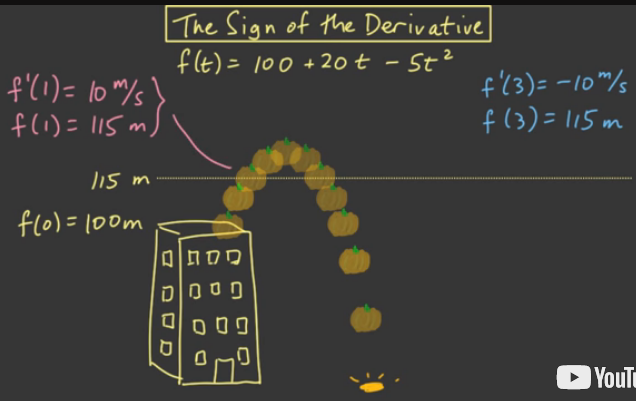 The Sign of the Derivative
f(t) = 100 + 20t - 5t²
f'(1) = 10 m/s
f(1) = 115 m
f'(3) = -10 m/s
f(3) = 115 m
115 m
f(0) = 100m